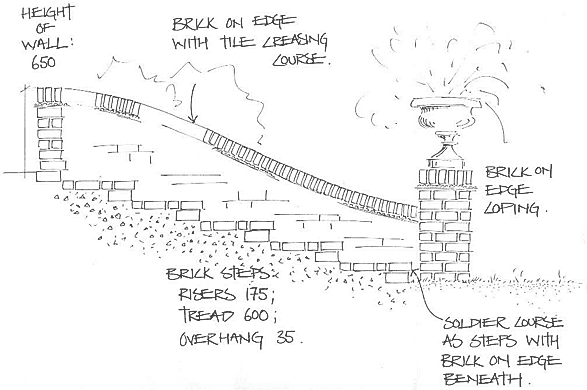 HEIGHT
OF
WALL:
650
BRICK ON EDGE
WITH TILE CREASING
COURSE.
BRICK ON
EDGE
COPING.
BRICK STEPS:
RISERS 175;
TREAD 600;
OVERHANG 35.
SOLDIER COURSE
AS STEPS WITH
BRICK ON EDGE
BENEATH.